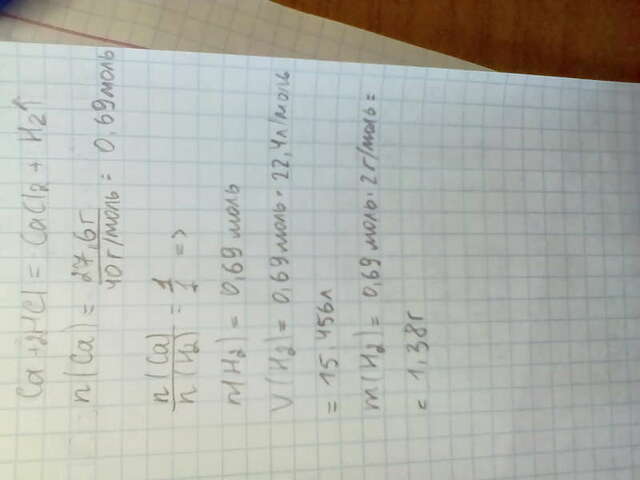 Ca + 2HCl = CaCl2 + H2↑
n(Ca) = 27,6г / 40г/моль = 0,69моль
n(Ca) / n(H2) = 1 / 1 =>
n(H2) = 0,69моль
V(H2) = 0,69моль · 22,4л/моль
= 15,456л
m(H2) = 0,69моль · 2г/моль =
= 1,38г